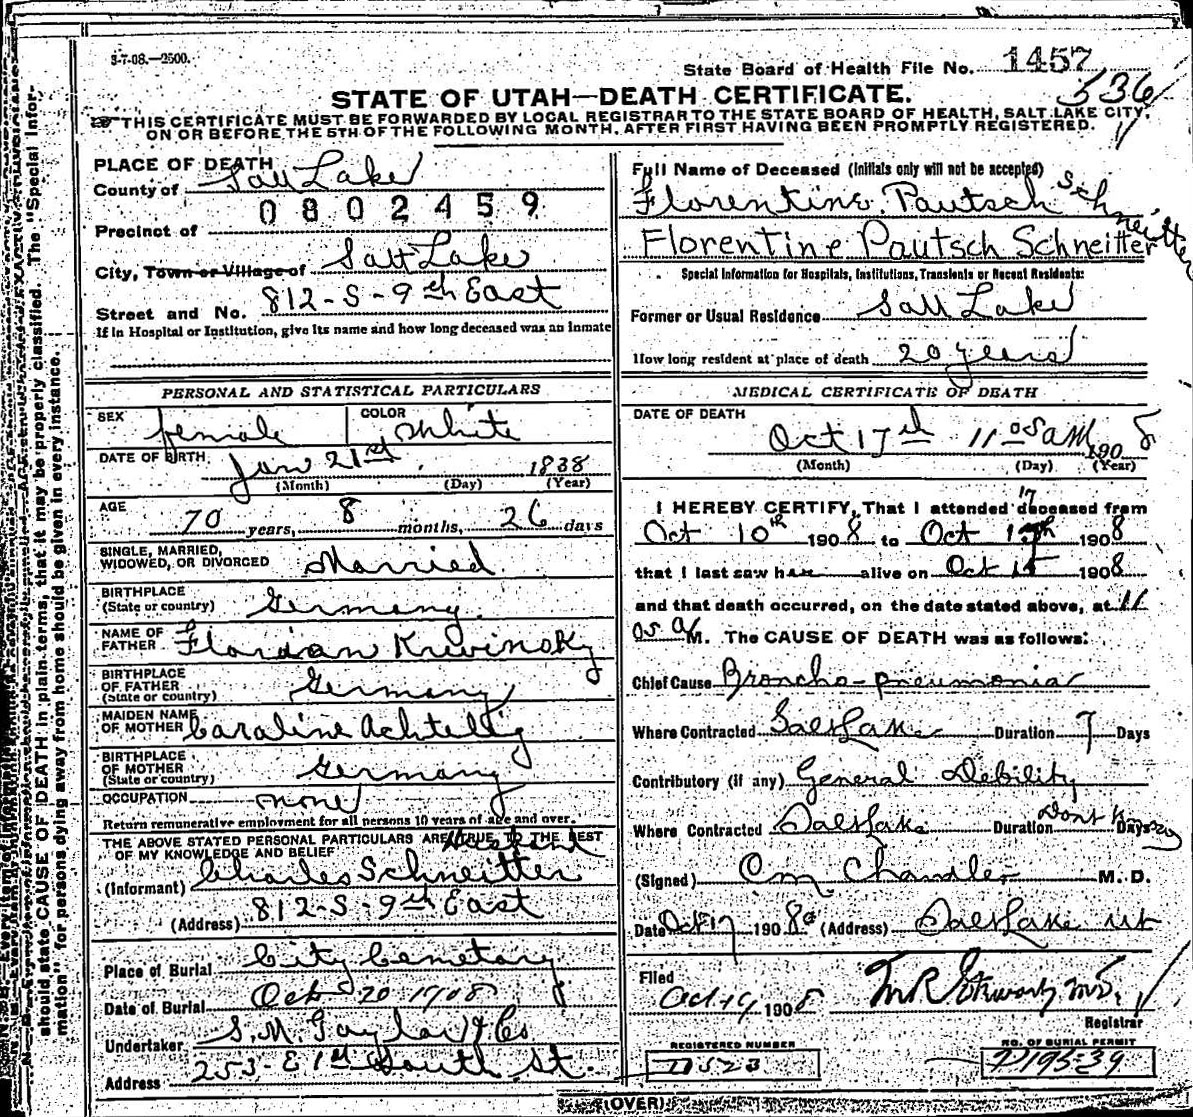 3-7-08.—2500.
State Board of Health File No. 1457
536
STATE OF UTAH—DEATH CERTIFICATE.
THIS CERTIFICATE MUST BE FORWARDED BY LOCAL REGISTRAR TO THE STATE BOARD OF HEALTH, SALT LAKE CITY,
ON OR BEFORE THE 5TH OF THE FOLLOWING MONTH, AFTER FIRST HAVING BEEN PROMPTLY REGISTERED.
PLACE OF DEATH
County of Salt Lake
0802459
Precinct of
City, Town or Village of Salt Lake
Street and No. 812-S-9th East
If in Hospital or Institution, give its name and how long deceased was an inmate
PERSONAL AND STATISTICAL PARTICULARS
SEX female COLOR White
DATE OF BIRTH Jan 21st 1838
(Month) (Day) (Year)
AGE 70 years, 8 months, 26 days
SINGLE, MARRIED,
WIDOWED, OR DIVORCED Married
BIRTHPLACE
(State or country) Germany
NAME OF
FATHER Florian Krwinsky
BIRTHPLACE
OF FATHER
(State or country) Germany
MAIDEN NAME
OF MOTHER Caraline Achtelig
BIRTHPLACE
OF MOTHER
(State or country) Germany
OCCUPATION none
Return remunerative employment for all persons 10 years of age and over.
THE ABOVE STATED PERSONAL PARTICULARS ARE TRUE TO THE BEST
OF MY KNOWLEDGE AND BELIEF
(Informant) Charles Schneitter
(Address) 812-S-9th East
Place of Burial City Cemetary
Date of Burial Oct 20 1908
Undertaker S. M. Taylor & Co
Address 253-E 1st South St.
Full Name of Deceased (Initials only will not be accepted)
Florentine Pautsch Schneitter
Florentine Pautsch Schneitter
Special Information for Hospitals, Institutions, Transients or Recent Residents:
Former or Usual Residence Salt Lake
How long resident at place of death 20 years
MEDICAL CERTIFICATE OF DEATH
DATE OF DEATH
Oct 17th 11 05 AM 1908
(Month) (Day) (Year)
I HEREBY CERTIFY, That I attended deceased from
17
Oct 10th 1908 to Oct 1908
that I last saw her alive on Oct 15 1908
and that death occurred, on the date stated above, at 11
05 A M. The CAUSE OF DEATH was as follows:
Chief Cause Broncho-pneumonia
Where Contracted Salt Lake Duration 7 Days
Contributory (if any) General Debility
Where Contracted Salt Lake Duration Dont Know Days
(Signed) O M Chandler M. D.
Date Oct 17 1908 (Address) Salt Lake Ut
Filed
Oct. 19, 1908
M.D.
Registrar
REGISTERED NUMBER
D 523
NO. OF BURIAL PERMIT
D 19539
(OVER)
should state CAUSE OF DEATH in plain terms, that it may be properly classified. The "Special Infor-
mation" for persons dying away from home should be given in every instance.